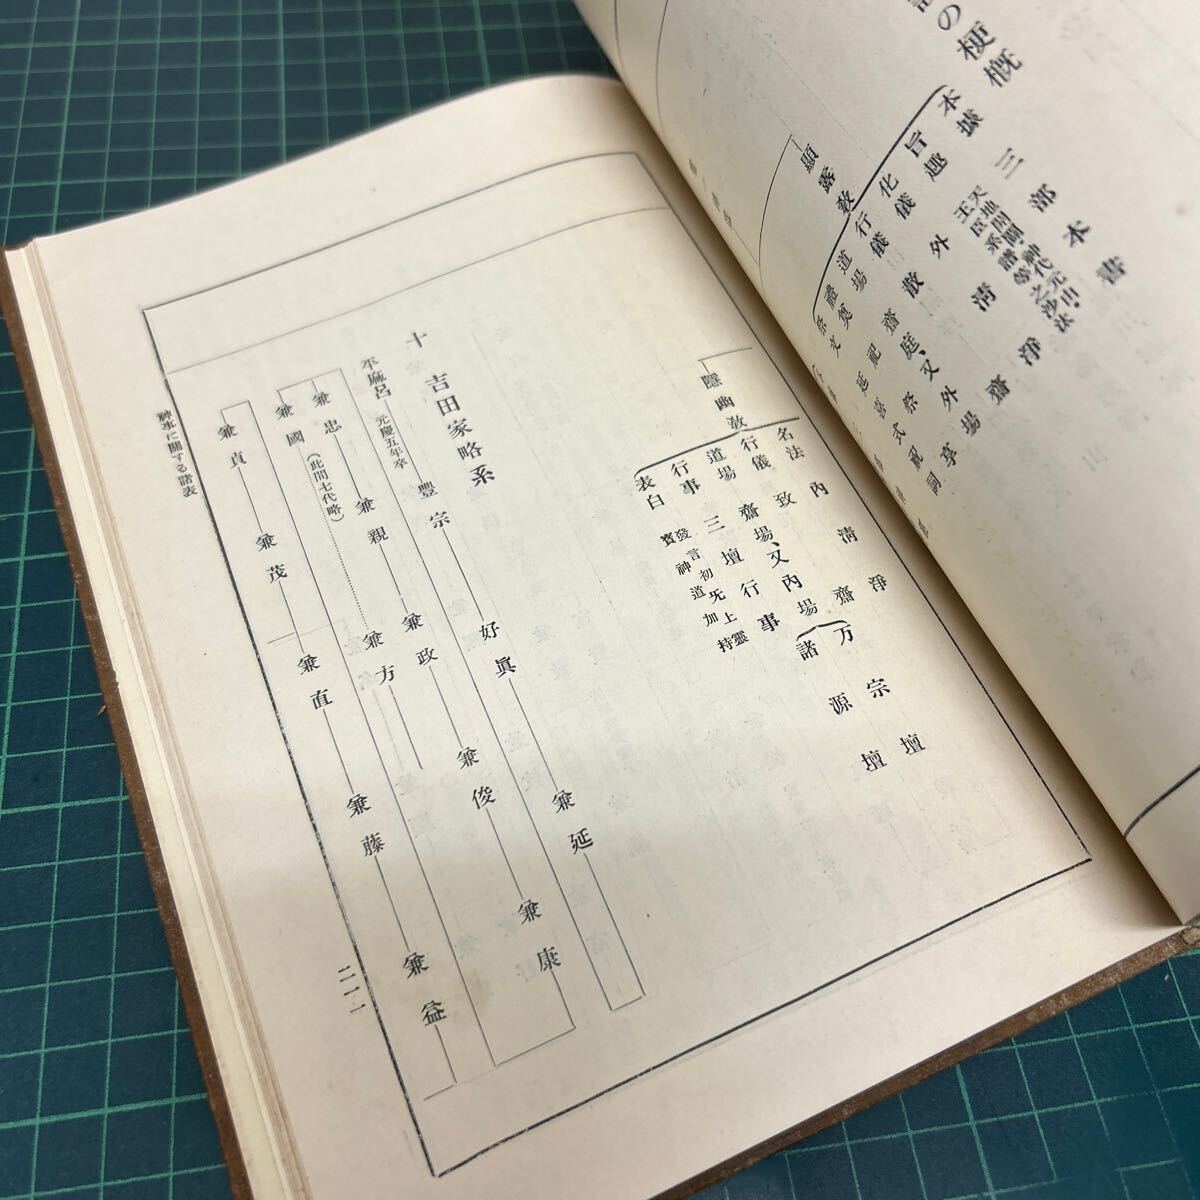 の梗概
顯露敎
本據 三部本書
旨趣 天地開闢、神代元由、
王臣系譜等之沙汰
化儀 外淸淨齋
行儀 散齋
道場 齋庭、又外場
禮奠
祭文 延喜式祝詞
隱幽敎
名法 內淸淨
行儀 致齋
道場 齋場、又內場 万宗壇
諸源壇
行事 三壇行事
表白 發言初旡上靈
寶神道加持
十 吉田家略系
平麻呂 元慶五年卒 豐宗 好眞 兼延
兼忠 兼親 兼政 兼俊 兼康
兼國 (此間七代略) 兼方
兼貞 兼茂 兼直 兼藤 兼益
神事に關する諸表
二一一